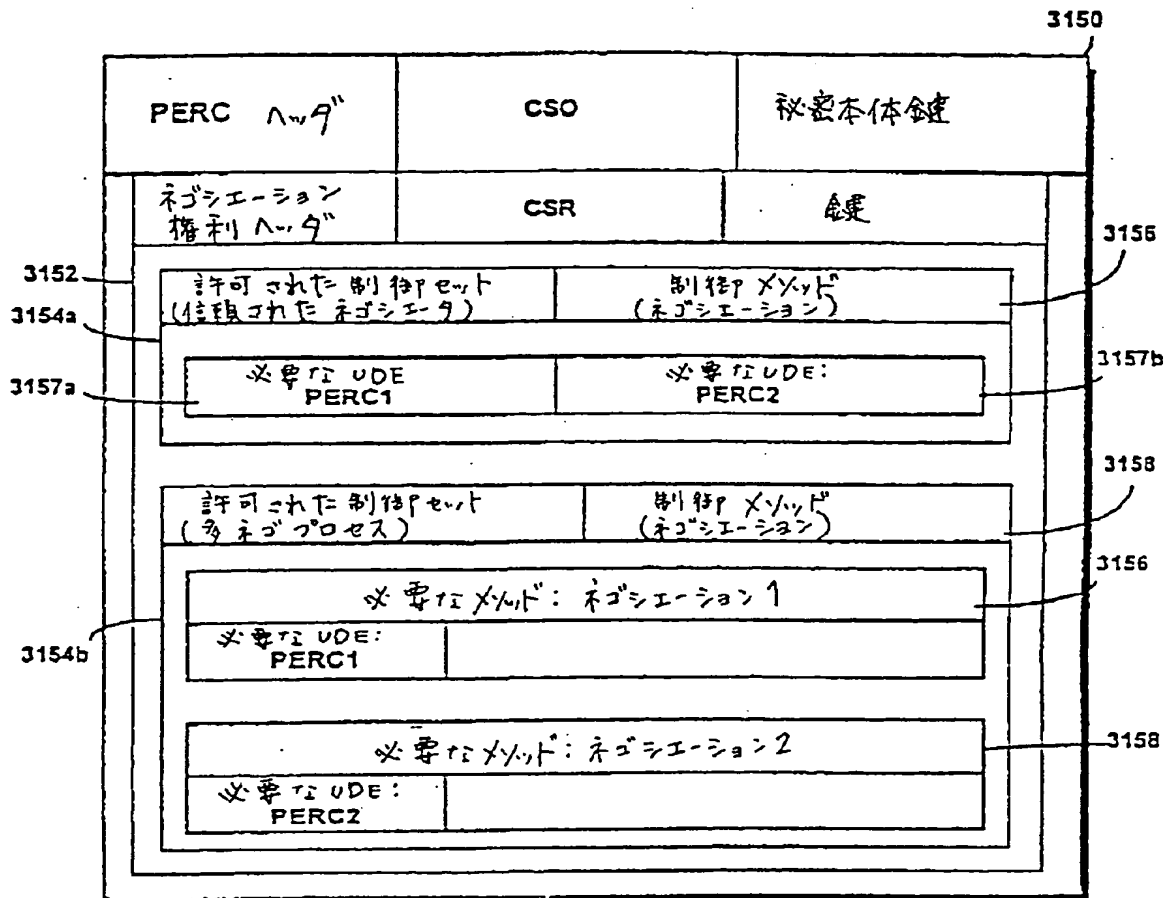 3150
PERC ヘッダ
CS0
秘密本体鍵
ネゴシエーション
権利ヘッダ
CSR
鍵
3156
3152
許可された制御セット
(信頼されたネゴシエータ)
制御メソッド
(ネゴシエーション)
3154a
3157a
必要なUDE
PERC1
必要なUDE:
PERC2
3157b
3158
許可された制御セット
(多ネゴプロセス)
制御メソッド
(ネゴシエーション)
3156
必要なメソッド: ネゴシエーション1
3154b
必要なUDE:
PERC1
必要なメソッド: ネゴシエーション2
3158
必要なUDE:
PERC2